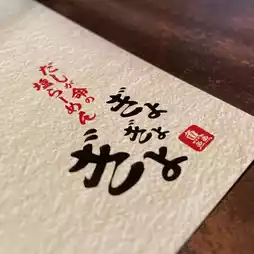 だしが命の
塩らーめん
ぎょ
ぎょ
ぎょ